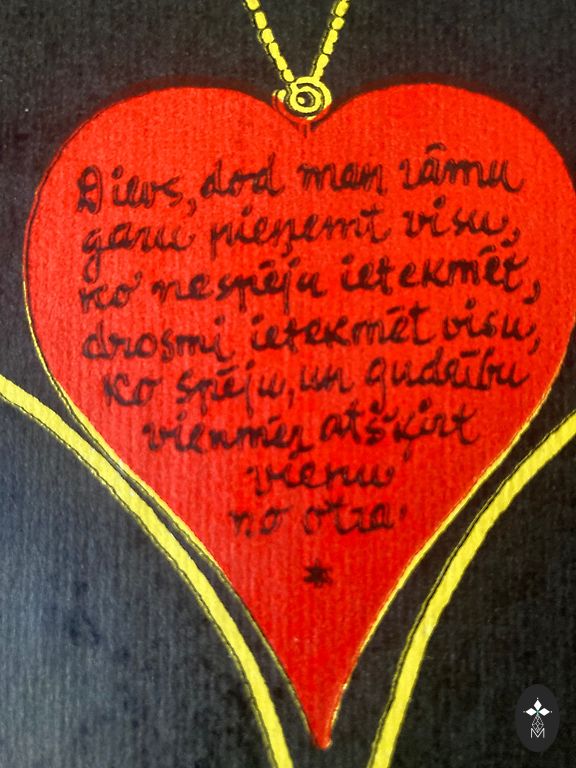 Dievs, dod man rāmu
garu pieņemt visu,
ko nespēju ietekmēt,
drosmi ietekmēt visu,
ko spēju, un gudrību
vienmēr atšķirt
vienu
no otra.
M